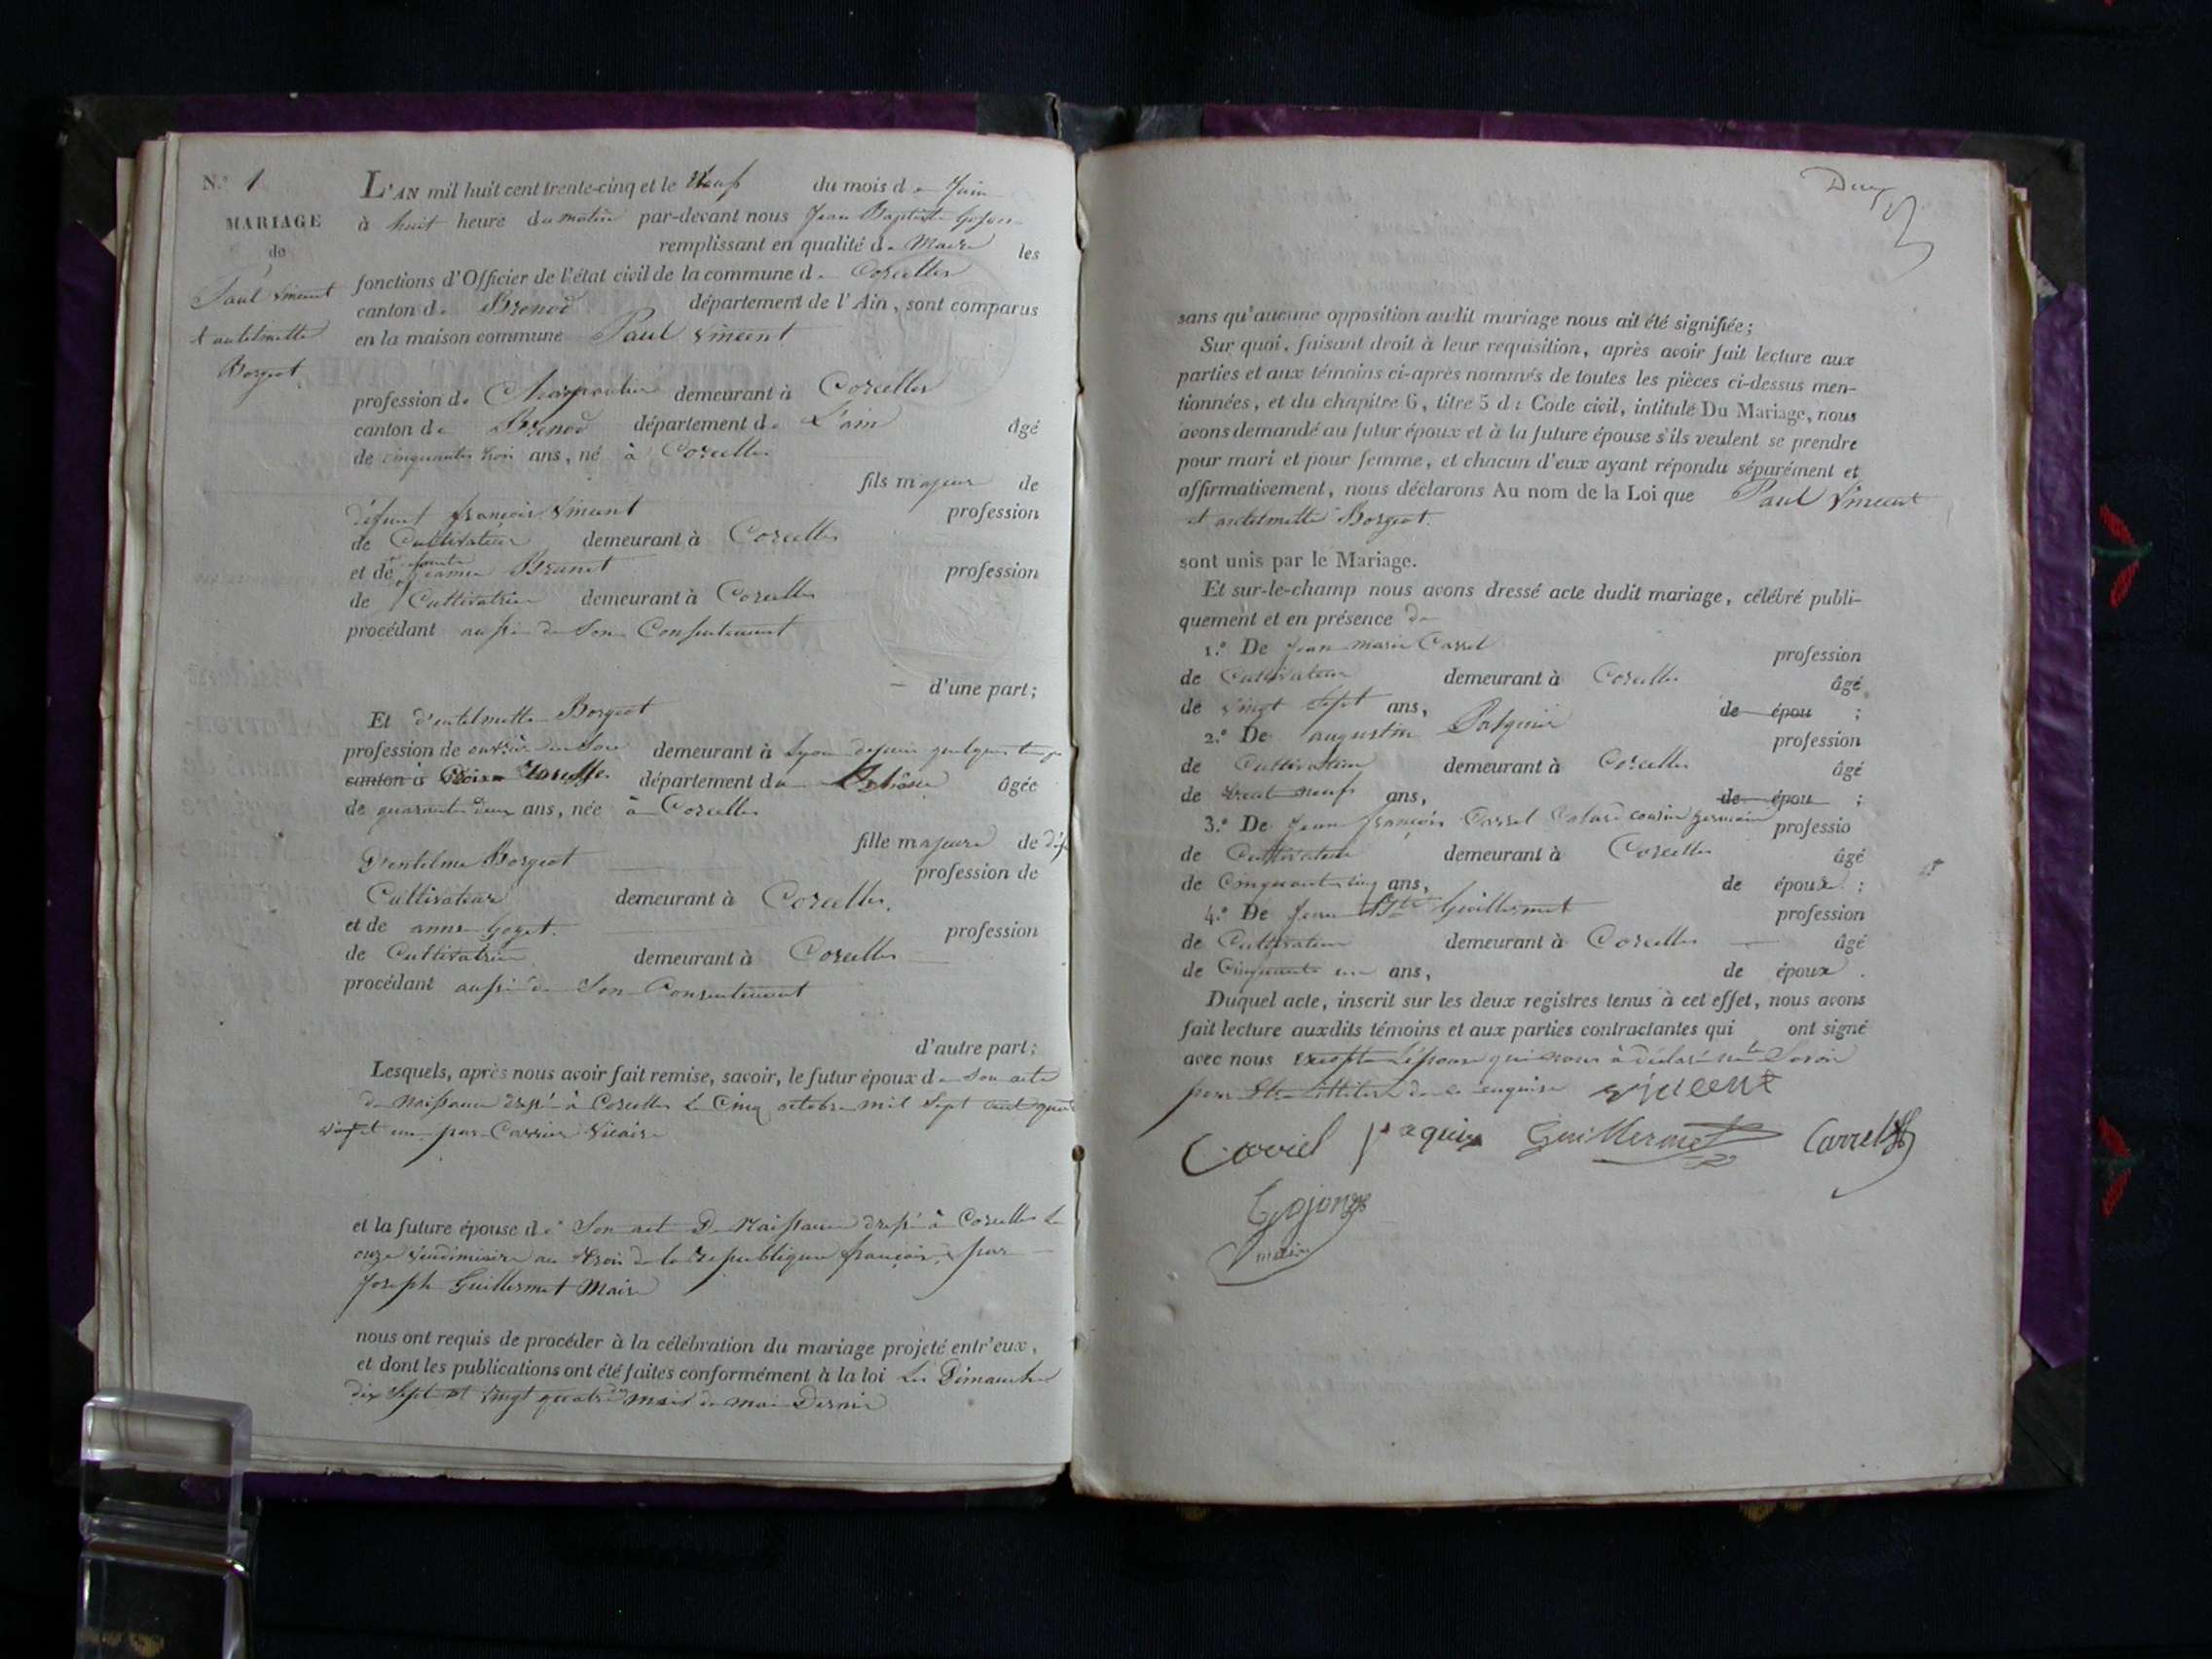 N.º 1
MARIAGE
de
Paul Vincent
et antelmette
Borgeot
L'AN mil huit cent trente-cinq et le Neuf du mois de Juin
à huit heure du matin par-devant nous Jean Baptiste Gojon
remplissant en qualité de Maire les
fonctions d'Officier de l'état civil de la commune de Corcelles
canton de Brenod département de l'Ain, sont comparus
en la maison commune Paul Vincent
profession de Charpentier demeurant à Corcelles
canton de Brenod département de L'ain âgé
de cinquante trois ans, né à Corcelles
fils majeur de
défunt françois Vincent profession
de Cultivateur demeurant à Corcelles
et de Brunet profession
de Cultivatrice demeurant à Corcelles
procédant aussi de Son Consentement
d'une part;
Et d'antelmette Borgeot
profession de ouvrière en Soie demeurant à Lyon depuis quelques temps
canton à Croix Rousse département du Rhône âgée
de quarante deux ans, née à Corcelles
fille majeure de déft
D'antelme Borgeot profession de
Cultivateur demeurant à Corcelles
et de anne Goyet profession
de Cultivatrice demeurant à Corcelles
procédant aussi de Son Consentement
d'autre part;
Lesquels, après nous avoir fait remise, savoir, le futur époux de Son acte
de Naissance dressé à Corcelles Le Cinq octobre mil Sept cent quatre
vingt un par Carrier Vicaire
et la future épouse de Son acte De Naissance dressé à Corcelles Le
onze Vendimiaire an trois de la republique française par
Joseph Guillermet Maire
nous ont requis de procéder à la célébration du mariage projeté entr'eux,
et dont les publications ont été faites conformément à la loi Les Dimanches
dix Sept et vingt quatre de mai Dernier
Deux
sans qu'aucune opposition audit mariage nous ait été signifiée;
Sur quoi, faisant droit à leur requisition, après avoir fait lecture aux
parties et aux témoins ci-après nommés de toutes les pièces ci-dessus men-
tionnées, et du chapitre 6, titre 5 du Code civil, intitulé Du Mariage, nous
avons demandé au futur époux et à la future épouse s'ils veulent se prendre
pour mari et pour femme, et chacun d'eux ayant répondu séparément et
affirmativement, nous déclarons Au nom de la Loi que Paul Vincent
et antelmette Borgeot
sont unis par le Mariage.
Et sur-le-champ nous avons dressé acte dudit mariage, célébré publi-
quement et en présence de
1.º De Jean marie Carrel profession
de Cultivateur demeurant à Corcelles âgé
de vingt Sept ans, de épou ;
2.º De augustin Pasquier profession
de Cultivateur demeurant à Corcelles âgé
de trente neuf ans, de épou ;
3.º De Jean françois Carrel cousin germain professio
de Cultivateur demeurant à Corcelles âgé
de Cinquante cinq ans, de époux ;
4.º De Jean Bte Guillermet profession
de Cultivateur demeurant à Corcelles âgé
de Cinquante un ans, de époux .
Duquel acte, inscrit sur les deux registres tenus à cet effet, nous avons
fait lecture auxdits témoins et aux parties contractantes qui ont signé
avec nous excepté L'épouse qui nous à déclaré ne Savoir
de ce enquise vincent
Carrel paquier Guillermet Carrel
Gojon
maire